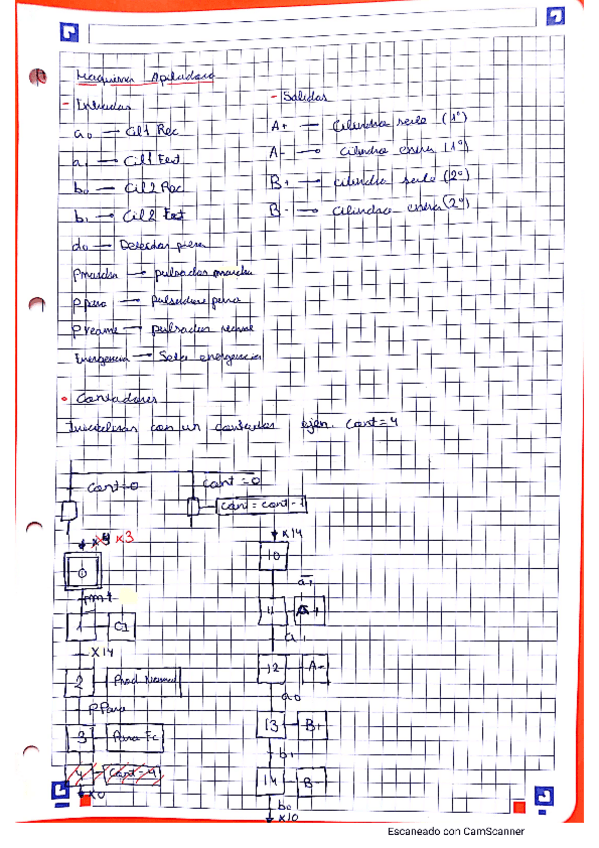 Maquina Apiladora
- Entradas
a0 → Cil1 Rec
a1 → Cil1 Ext
b0 → Cil2 Rec
b1 → Cil2 Ext
d0 → Detectar pieza
Pmarcha → pulsador marcha
Pparo → Pulsador
Preame → pulsador rearme
Emergencia → Seta emergencia
- Salidas
A+ → Cilindro sale (1º)
A- → Cilindro entra (1º)
B+ → Cilindro sale (2º)
B- → Cilindro entra (2º)
• Contadores
Inicializar con un contador ejem. Cont=4
Cont=0
Cont=0
Cont=Cont-1
x3
0
1
C1
X14
2
Prod Normal
PParo
3
Para Fc
4
Cont=4
x0
x14
10
a1
11
a1
12
A-
a0
13
B+
b1
14
B-
b0
x10
Escaneado con CamScanner